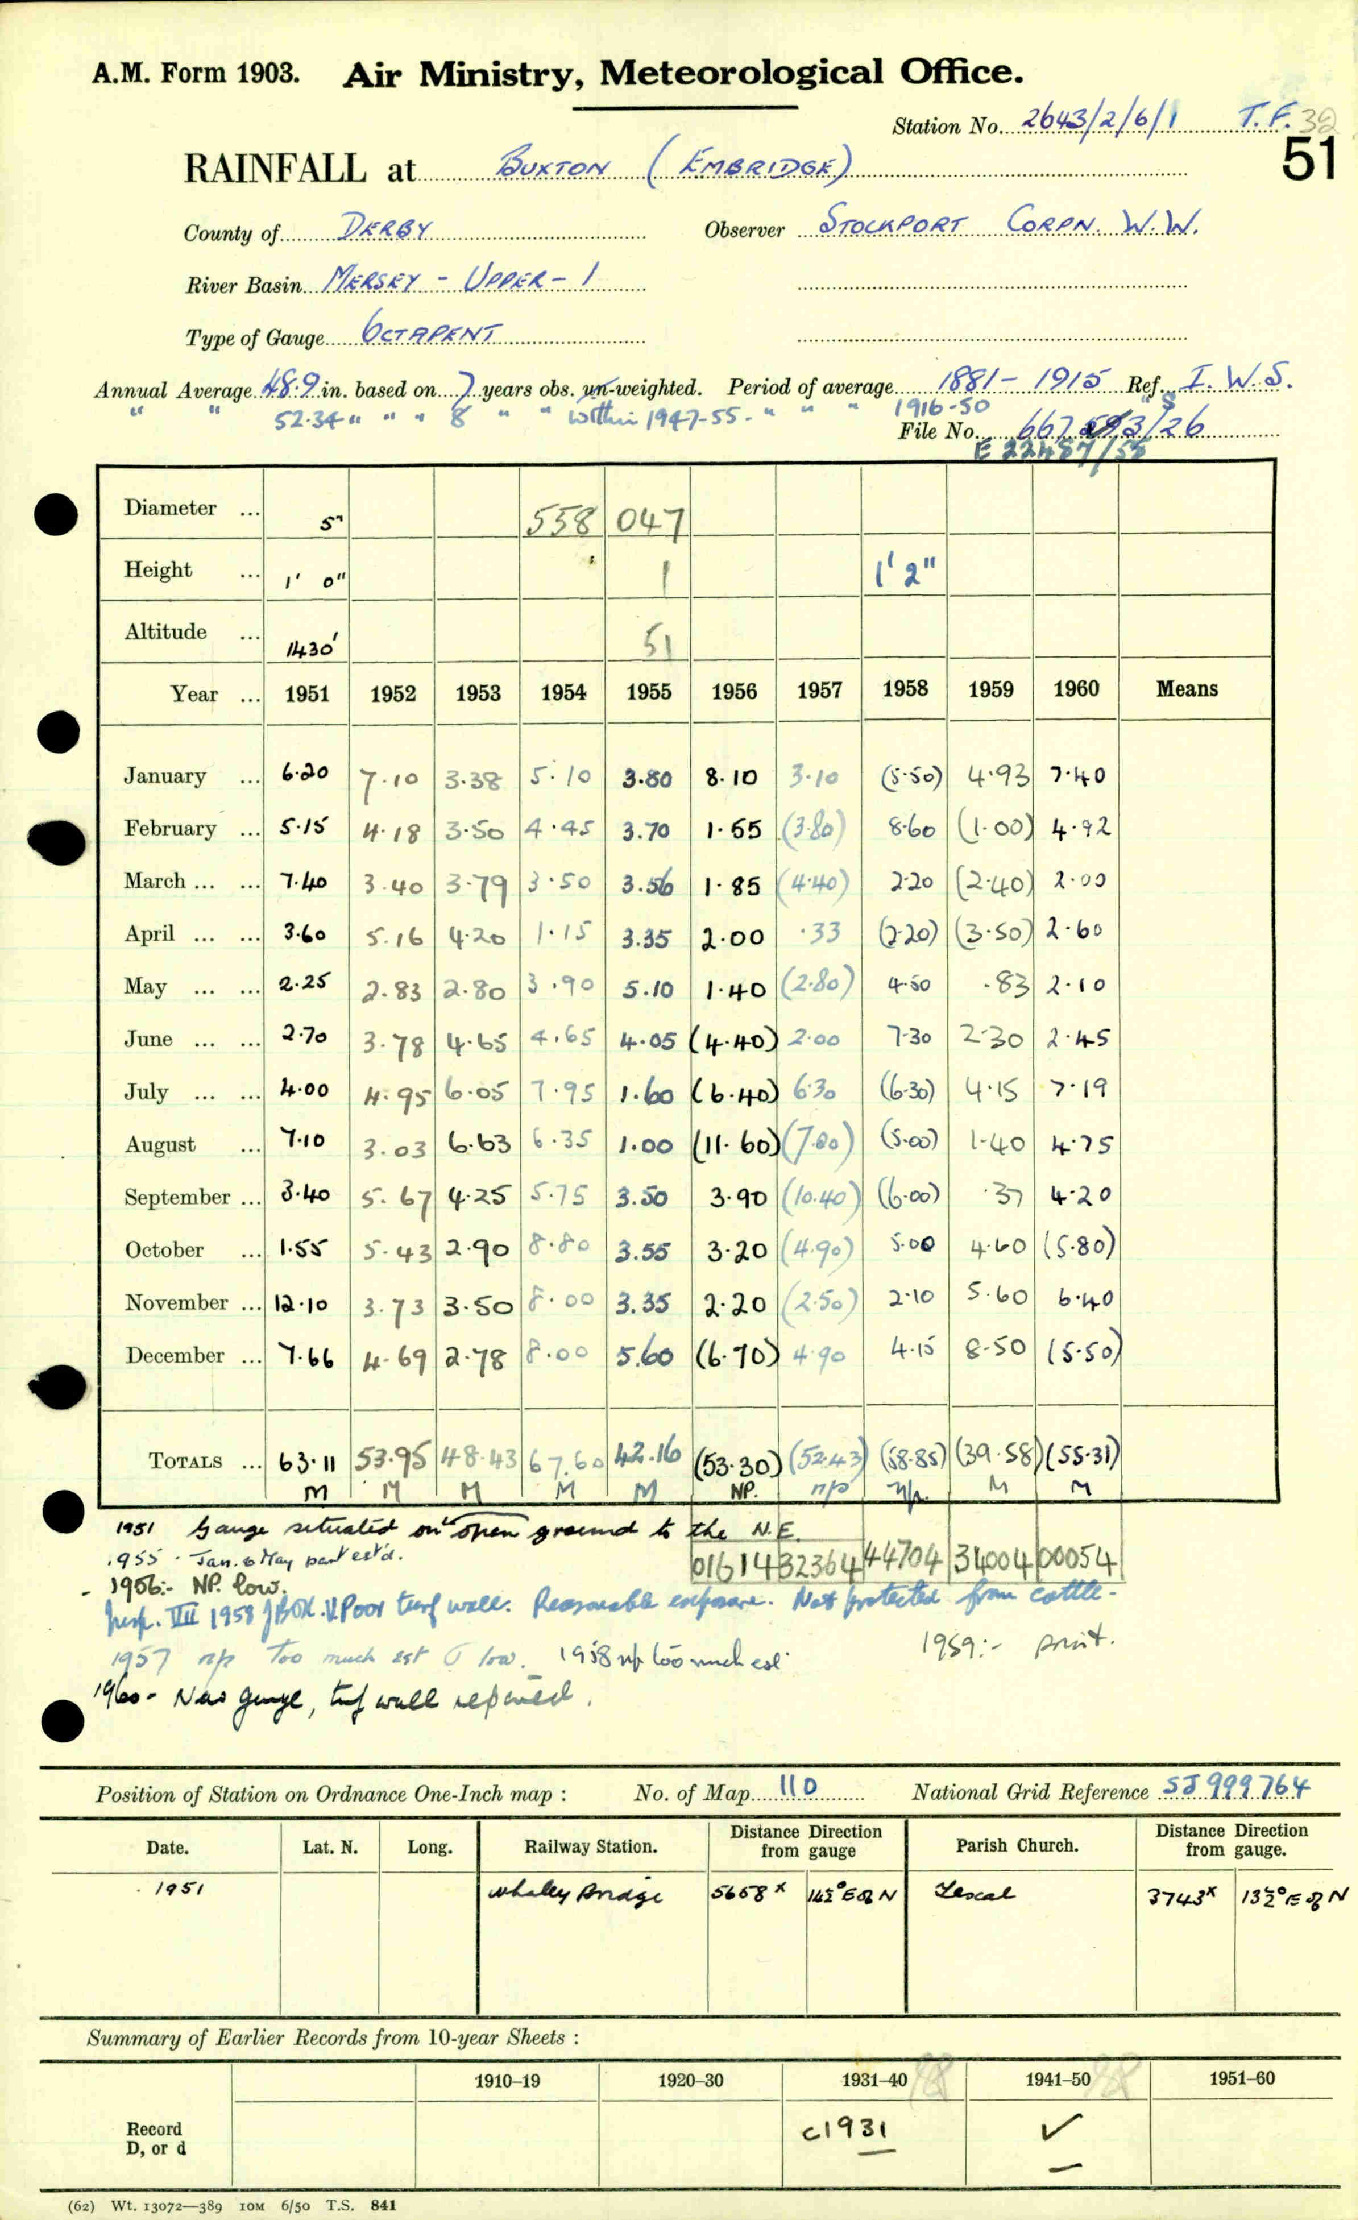 A.M. Form 1903. Air Ministry, Meteorological Office.
Station No. 2643/2/6/1 T.F. 32
51
RAINFALL at BUXTON (EMBRIDGE)
County of DERBY Observer STOCKPORT CORPN. W.W.
River Basin MERSEY - UPPER - 1
Type of Gauge OCTAPENT
Annual Average 48.9 in. based on 7 years obs. un-weighted. Period of average 1881-1915 Ref. I.W.S.
" " 52.34 " " " 8 " " within 1947-55 - " " " 1916-50 " S
File No. 667 3/26
E 22487/55
Diameter ... 5" 558 047
Height ... 1' 0" 1 1' 2"
Altitude ... 1430' 51
Year ... 1951 1952 1953 1954 1955 1956 1957 1958 1959 1960 Means
January ... 6.20 7.10 3.38 5.10 3.80 8.10 3.10 (5.50) 4.93 7.40
February ... 5.15 4.18 3.50 4.45 3.70 1.55 (3.80) 8.60 (1.00) 4.92
March ... ... 7.40 3.40 3.79 3.50 3.56 1.85 (4.40) 2.20 (2.40) 2.00
April ... ... 3.60 5.16 4.20 1.15 3.35 2.00 .33 (2.20) (3.50) 2.60
May ... ... 2.25 2.83 2.80 3.90 5.10 1.40 (2.80) 4.50 .83 2.10
June ... ... 2.70 3.78 4.65 4.65 4.05 (4.40) 2.00 7.30 2.30 2.45
July ... ... 4.00 4.95 6.05 7.95 1.60 (6.40) 6.30 (6.30) 4.15 7.19
August ... 7.10 3.03 6.63 6.35 1.00 (11.60) (7.80) (5.00) 1.40 4.75
September ... 3.40 5.67 4.25 5.75 3.50 3.90 (10.40) (6.00) .37 4.20
October ... 1.55 5.43 2.90 8.80 3.55 3.20 (4.90) 5.00 4.60 (5.80)
November ... 12.10 3.73 3.50 8.00 3.35 2.20 (2.50) 2.10 5.60 6.40
December ... 7.66 4.69 2.78 8.00 5.60 (6.70) 4.90 4.15 8.50 (5.50)
TOTALS ... 63.11 53.95 48.43 67.60 42.16 (53.30) (52.43) (58.85) (39.58) (55.31)
M M M M M NP. n/p n/p. M M
1951 Gauge situated on open ground to the N.E.
1955 . Jan. & May part est'd.
01614 32364 44704 34004 00054
1956:- NP. low.
Insp. VIII 1958 Poor turf wall. Reasonable exposure. Not protected from cattle.
1957 n/p Too much est & low. 1958 n/p too much est. 1959:- print.
1960 - New gauge, turf wall repaired.
Position of Station on Ordnance One-Inch map : No. of Map 110 National Grid Reference SJ 999764
Date. Lat. N. Long. Railway Station. Distance from gauge Direction Parish Church. Distance from gauge. Direction
1951 Whaley Bridge 5658x 14½° E of N 3743x 13½° E of N
Summary of Earlier Records from 10-year Sheets :
1910–19 1920–30 1931–40 1941–50 1951–60
Record D, or d c1931 ✓
(62) Wt. 13072—389 10M 6/50 T.S. 841